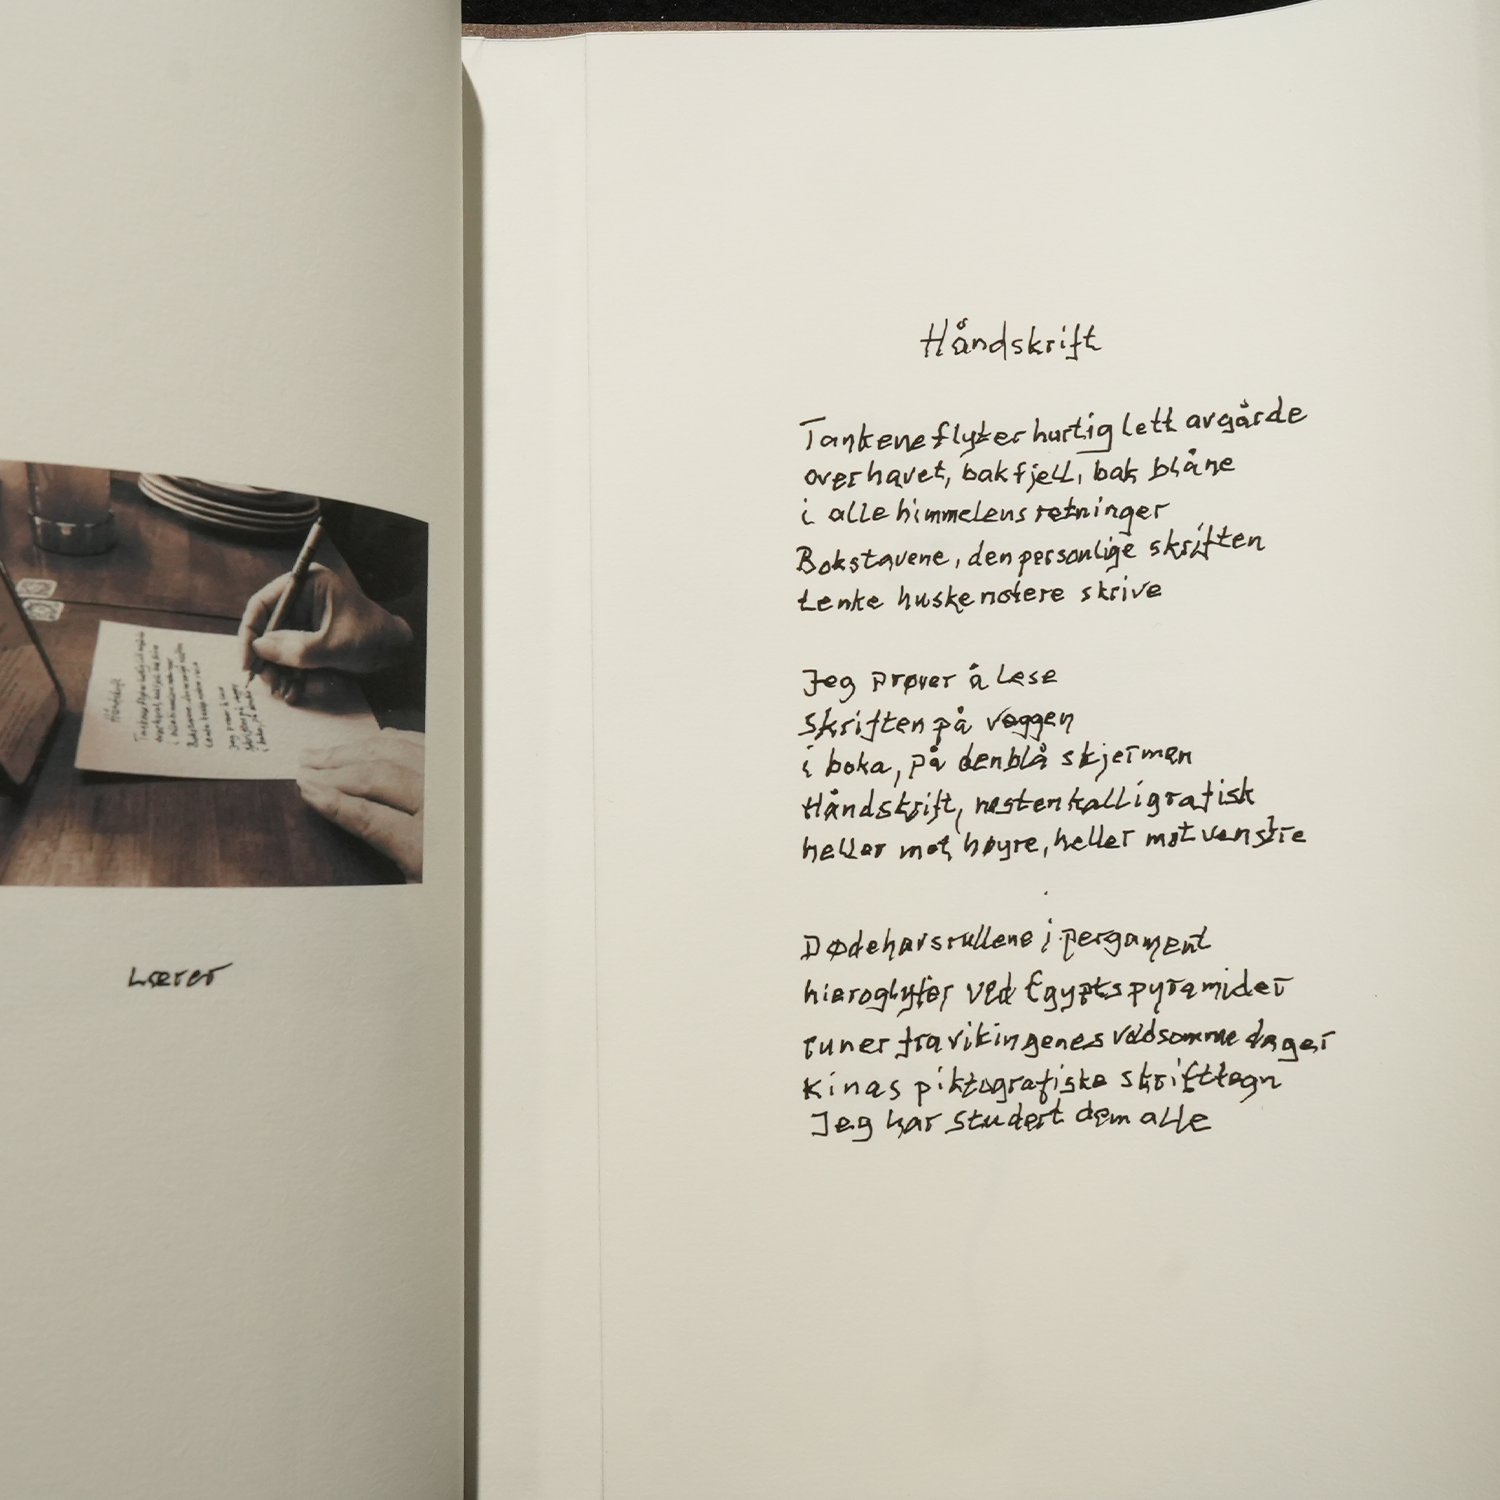 Lærer
Håndskrift
Tankene flyter hurtig lett avgårde
over havet, bak fjell, bak blåne
i alle himmelens retninger
Bokstavene, den personlige skriften
tenke huske notere skrive
Jeg prøver å lese
skriften på veggen
i boka, på den blå skjermen
Håndskrift, nesten kalligrafisk
heller mot høyre, heller mot venstre
Dødehavsrullene i pergament
hieroglyfer ved Egypts pyramider
runer fra vikingenes voldsomme dager
Kinas piktografiske skrifttegn
Jeg har studert dem alle